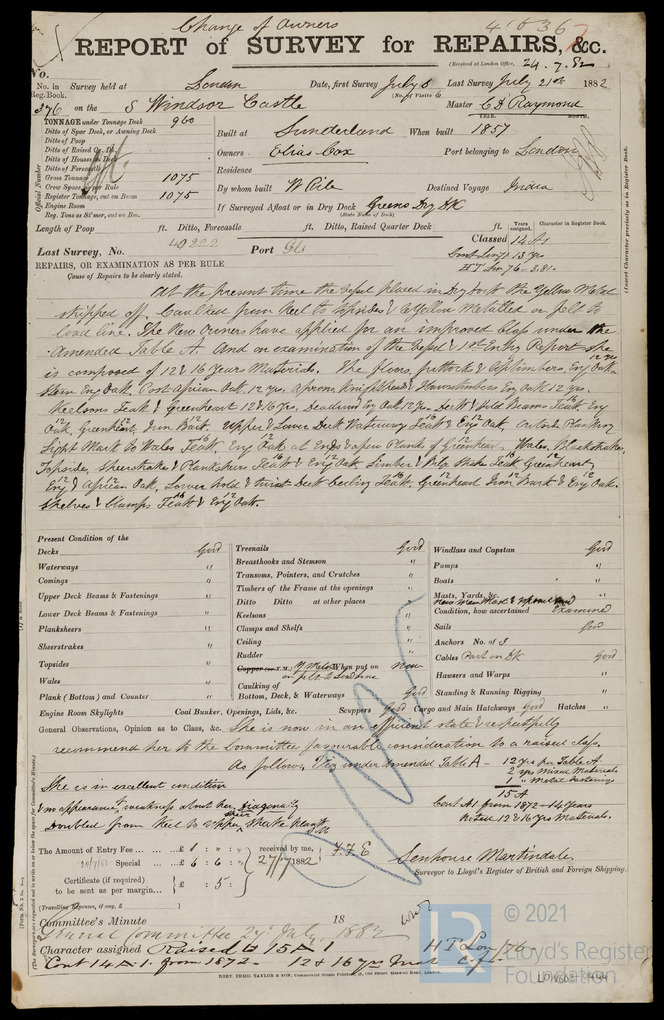 Change of Owners
REPORT of SURVEY for REPAIRS, &c.
(Received at London Office, 24.7.82
No.
No. in Reg. Book. Survey held at London Date, first Survey July 6 Last Survey July 21st 1882
(No. of Visits 6
376 on the S Windsor Castle Master C D Raymond
TONNAGE under Tonnage Deck 960
Ditto of Spar Deck, or Awning Deck
Ditto of Poop
Ditto of Raised Qr. Dk.
Ditto of Houses on Deck
Ditto of Forecastle
Gross Tonnage 1075
Crew Space, as per Rule
Register Tonnage, cut on Beam 1075
Engine Room
Reg. Tons as St'mer, cut on Bm.
Official Number
YEAR. MONTH.
Built at Sunderland When built 1857
Owners Elias Cox Port belonging to London
Residence
By whom built W Pile Destined Voyage India
If Surveyed Afloat or in Dry Dock Greens Dry Dk
(State Name of Dock)
Length of Poop ft. Ditto, Forecastle ft. Ditto, Raised Quarter Deck ft.
Years assigned. Character in Register Book.
Classed 14 A1
Last Survey, No. Port
Cont Lon 13 yrs
REPAIRS, OR EXAMINATION AS PER RULE
Cause of Repairs to be clearly stated.
(Insert Character precisely as in Register Book.
At the present time the vessel placed in Dry Dock the Yellow Metal
stripped off. Caulked from Keel to topsides & Yellow Metalled on felt to
load line. The New Owners have applied for an improved class under the
Amended Table A. And on examination of the Vessel & 1st Entry Report she
is composed of 12 & 16 years Materials. The floors, futtocks & toptimbers Eng Oak 12 yrs
Stem Eng Oak. Post African Oak, 12 yrs. Aprons, Knightheads & Hawsetimbers Eng Oak 12 yrs.
Keelsons Teak & Greenheart 12 & 16 yrs, Deadwood Eng Oak 12 yrs. Deck & Hold Beams Teak, Eng
Oak, Greenheart, Iron Bark. Upper & Lower Deck Waterways Teak & Eng Oak. Outside Planking
Light Mark to Wales Teak, Eng Oak at Ends & a few Planks of Greenheart. Wales, Blackstrakes,
Topsides, Sheerstrakes & Planksheers Teak & Eng Oak. Limber & Bilge Strakes Teak, Greenheart,
Eng & African Oak, Lower hold & twixt Deck Ceiling Teak, Greenheart, Iron Bark & Eng Oak.
Shelves & Clamps Teak & Eng Oak.
Present Condition of the
Decks Good
Waterways "
Comings "
Upper Deck Beams & Fastenings "
Lower Deck Beams & Fastenings "
Planksheers "
Sheerstrakes "
Topsides "
Wales "
Plank (Bottom) and Counter "
Treenails Good
Breasthooks and Stemson "
Transoms, Pointers, and Crutches "
Timbers of the Frame at the openings "
Ditto Ditto at other places "
Keelsons "
Clamps and Shelfs "
Ceiling "
Rudder "
Copper (or Y.M.) Y Metal When put on now
on felt to load line
Caulking of
Bottom, Deck, & Waterways Good
Windlass and Capstan Good
Pumps "
Boats "
Masts, Yards, &c. "
Condition, how ascertained Examined
Sails Good
Anchors No. of 3
Cables Part on Dk Good
Hawsers and Warps "
Standing & Running Rigging "
Engine Room Skylights Coal Bunker, Openings, Lids, &c. Scuppers Good Cargo and Main Hatchways Good Hatches "
General Observations, Opinion as to Class, &c. She is now in an efficient state & respectfully
recommend her to the Committee favourable consideration to a raised class.
As follow, Viz under amended Table A - 12 yrs per Table A
2 yrs Mixed Materials
1 " Metal fastenings
15 A
She is in excellent condition
& no appearance of weakness about her, Diagonally
Doubled from Keel to upper sheer strake
Cont A1 from 1872 - 14 years
12 & 16 yrs Materials.
The Amount of Entry Fee £ 1 : " : " received by me,
Special £ 6 : 6 : 27/7 1882 F.F.E
Certificate (if required) to be sent as per margin £ : 5 :
(Travelling Expenses, if any, £ )
Senhouse Martindale.
Surveyor to Lloyd's Register of British and Foreign Shipping.
Committee's Minute 18
Committee 27 July 1882
Character assigned Raised to 15 A 1 HT Lon 76
Cont 14 A.1. from 1872 - 12 & 16 yrs Mat
ROBT. EDMD. TAYLOR & SON, Commercial Steam Printers, 19, Old Street, Goswell Road, London.
LR © 2021
Lloyd's Register
Foundation